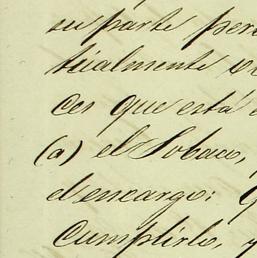 su parte per
tualmente en
ces que está
(a) el Sobaco,
el encargo:
Cumplirlo, y